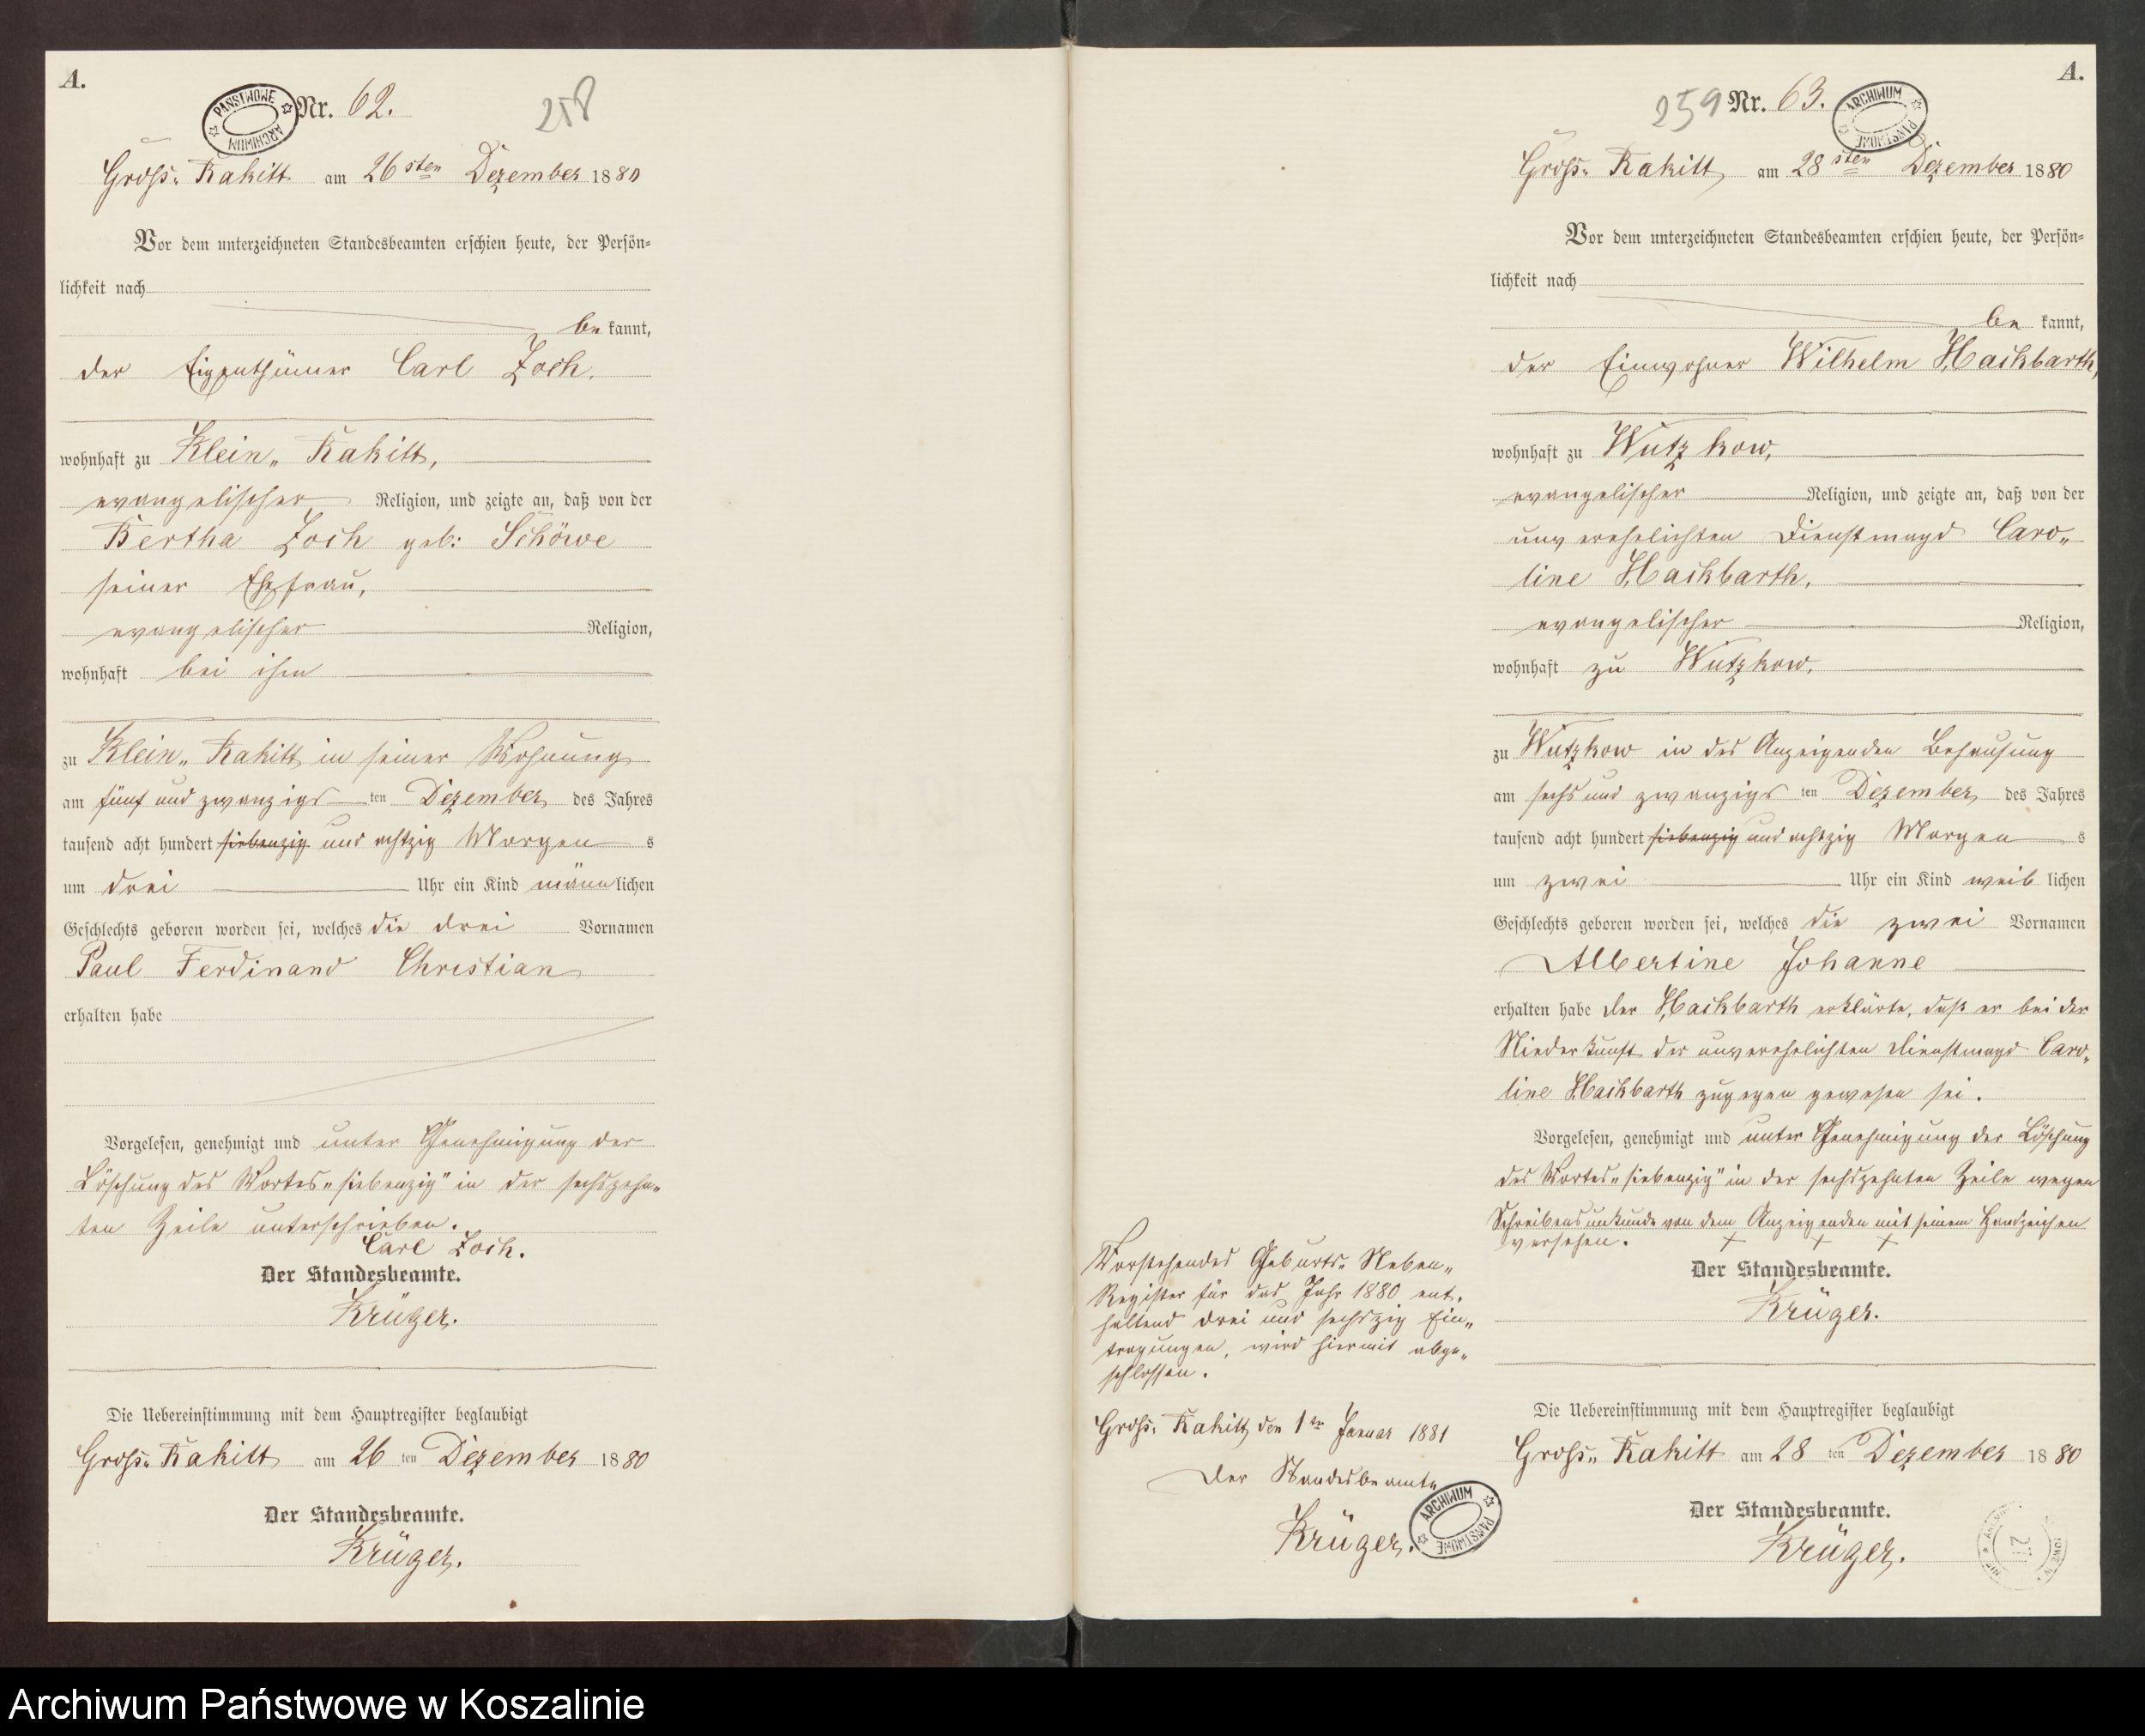 A.
PAŃSTWOWE ARCHIWUM
Nr. 62.
258
Groß- Rakitt am 26sten Dezember 1880
Vor dem unterzeichneten Standesbeamten erschien heute, der Persön=
lichkeit nach
be kannt,
der Eigenthümer Carl Zoch.
wohnhaft zu Klein- Rakitt,
evangelischer Religion, und zeigte an, daß von der
Bertha Zoch geb: Schöwe
seiner Ehefrau,
evangelischer Religion,
wohnhaft bei ihm
zu Klein- Rakitt in seiner Wohnung
am fünf und zwanzigs ten Dezember des Jahres
tausend acht hundert siebenzig und achtzig Morgen s
um drei Uhr ein Kind männlichen
Geschlechts geboren worden sei, welches die drei Vornamen
Paul Ferdinand Christian
erhalten habe
Vorgelesen, genehmigt und unter Genehmigung der
Löschung des Wortes "siebenzig" in der sechszehn-
ten Zeile unterschrieben.
Carl Zoch.
Der Standesbeamte.
Krüger.
Die Uebereinstimmung mit dem Hauptregister beglaubigt
Groß- Rakitt am 26 ten Dezember 1880
Der Standesbeamte.
Krüger.
Vorstehendes Geburts- Neben-
Register für das Jahr 1880 ent-
haltend drei und sechszig Ein-
tragungen, wird hiermit abge-
schlossen.
Groß- Rakitt, den 1ten Januar 1881
Der Standesbeamte
Krüger.
ARCHIWUM PAŃSTWOWE
A.
259
Nr. 63.
ARCHIWUM PAŃSTWOWE
Groß- Rakitt, am 28sten Dezember 1880
Vor dem unterzeichneten Standesbeamten erschien heute, der Persön=
lichkeit nach
be kannt,
der Einwohner Wilhelm Hackbarth,
wohnhaft zu Wutzkow,
evangelischer Religion, und zeigte an, daß von der
unverehelichten Dienstmagd Caro-
line Hackbarth,
evangelischer Religion,
wohnhaft zu Wutzkow,
zu Wutzkow in des Anzeigenden Behausung
am sechs und zwanzigs ten Dezember des Jahres
tausend acht hundert siebenzig und achtzig Morgen s
um zwei Uhr ein Kind weib lichen
Geschlechts geboren worden sei, welches die zwei Vornamen
Albertine Johanne
erhalten habe Der Hackbarth erklärte, daß er bei der
Niederkunft der unverehelichten Dienstmagd Caro-
line Hackbarth zugegen gewesen sei.
Vorgelesen, genehmigt und unter Genehmigung der Löschung
des Wortes "siebenzig" in der sechszehnten Zeile wegen
Schreibensunkunde von dem Anzeigenden mit seinem Handzeichen
versehen. + + +
Der Standesbeamte.
Krüger.
Die Uebereinstimmung mit dem Hauptregister beglaubigt
Groß- Rakitt am 28 ten Dezember 1880
Der Standesbeamte.
Krüger.
Archiwum Państwowe w Koszalinie